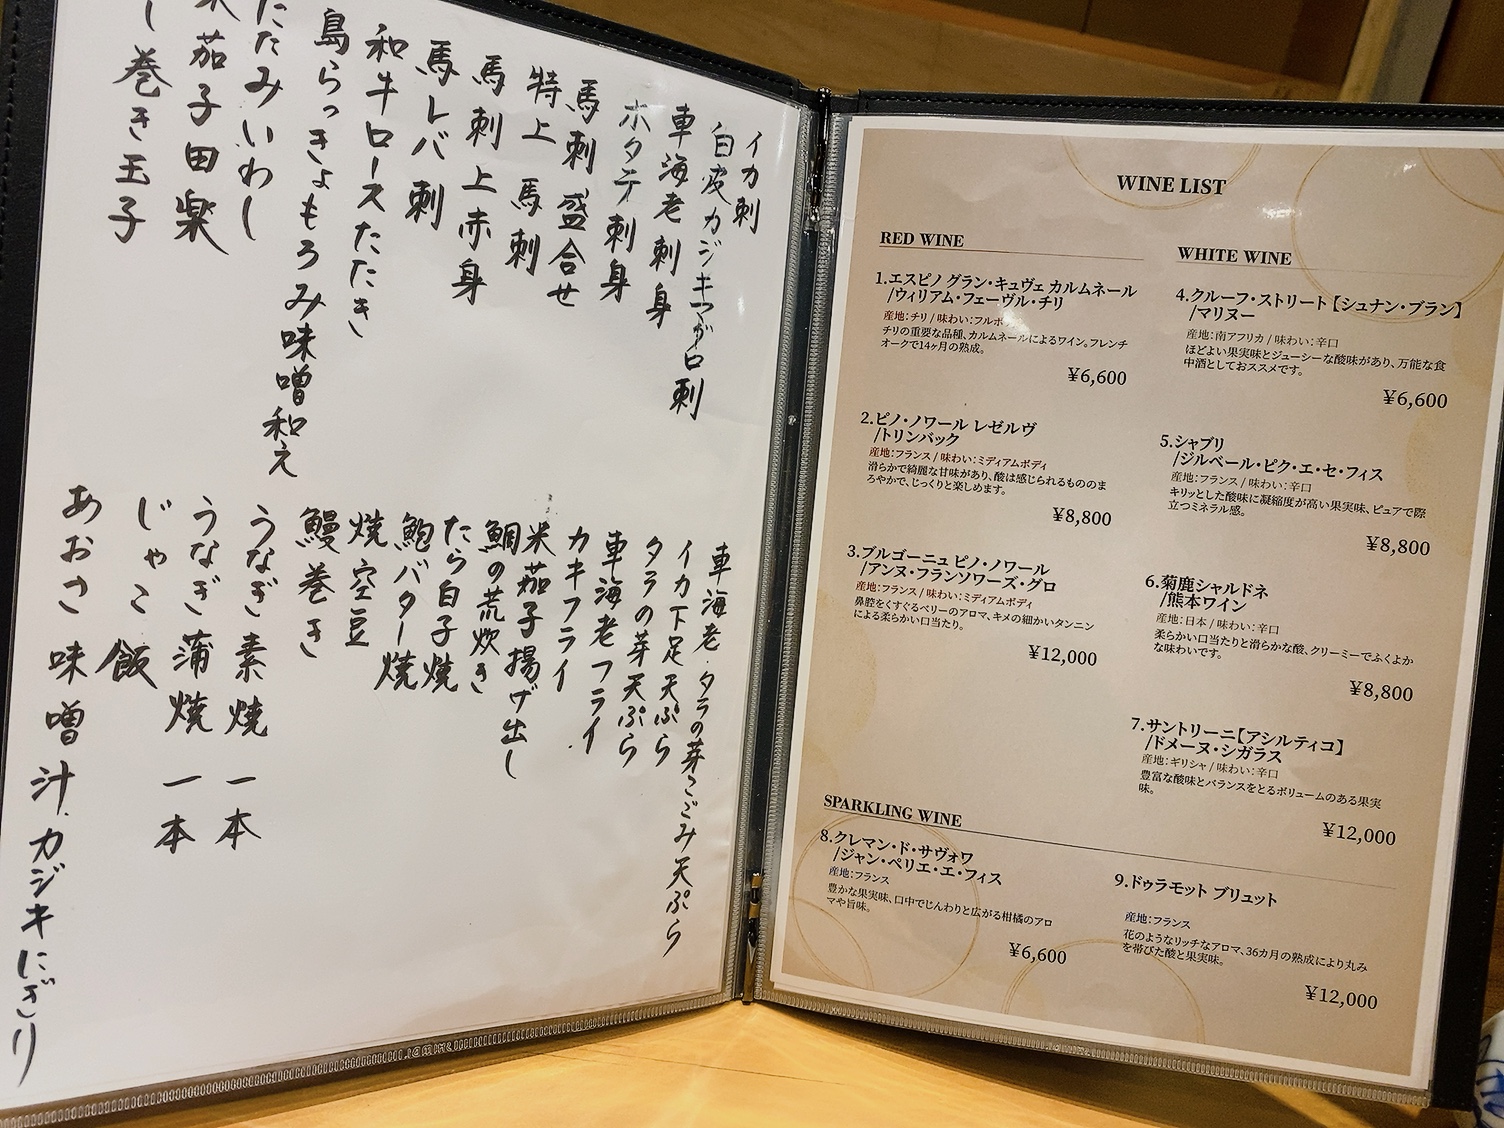 イカ刺
白皮カジキマグロ刺
車海老刺身
ホタテ刺身
馬刺盛合せ
特上馬刺
馬刺上赤身
馬レバ刺
和牛ロースたたき
島らっきょもろみ味噌和え
たたみいわし
米茄子田楽
し巻き玉子
車海老・タラの芽こごみ天ぷら
イカ下足天ぷら
タラの芽天ぷら
車海老フライ
カキフライ
米茄子揚げ出し
鯛の荒炊き
たら白子焼
鮑バター焼
焼空豆
鰻巻き
うなぎ素焼一本
うなぎ蒲焼一本
じゃこ飯
あおさ味噌汁
カジキにぎり
WINE LIST
RED WINE
1.エスピノ グラン・キュヴェ カルムネール
/ウィリアム・フェーヴル・チリ
産地：チリ / 味わい：フルボ
チリの重要な品種、カルムネールによるワイン。フレンチ
オークで14ヶ月の熟成。
¥6,600
2.ピノ・ノワール レゼルヴ
/トリンバック
産地：フランス / 味わい：ミディアムボディ
滑らかで綺麗な甘味があり、酸は感じられるもののま
ろやかで、じっくりと楽しめます。
¥8,800
3.ブルゴーニュ ピノ・ノワール
/アンヌ・フランソワーズ・グロ
産地：フランス / 味わい：ミディアムボディ
鼻腔をくすぐるベリーのアロマ、キメの細かいタンニン
による柔らかい口当たり。
¥12,000
WHITE WINE
4.クルーフ・ストリート【シュナン・ブラン】
/マリヌー
産地：南アフリカ / 味わい：辛口
ほどよい果実味とジューシーな酸味があり、万能な食
中酒としておススメです。
¥6,600
5.シャブリ
/ジルベール・ピク・エ・セ・フィス
産地：フランス / 味わい：辛口
キリッとした酸味に凝縮度が高い果実味、ピュアで際
立つミネラル感。
¥8,800
6.菊鹿シャルドネ
/熊本ワイン
産地：日本 / 味わい：辛口
柔らかい口当たりと滑らかな酸、クリーミーでふくよか
な味わいです。
¥8,800
7.サントリーニ【アシルティコ】
/ドメーヌ・シガラス
産地：ギリシャ / 味わい：辛口
豊富な酸味とバランスをとるボリュームのある果実
味。
¥12,000
SPARKLING WINE
8.クレマン・ド・サヴォワ
/ジャン・ペリエ・エ・フィス
産地：フランス
豊かな果実味、口中でじんわりと広がる柑橘のアロ
マや旨味。
¥6,600
9.ドゥラモット ブリュット
産地：フランス
花のようなリッチなアロマ、36カ月の熟成により丸み
を帯びた酸と果実味。
¥12,000